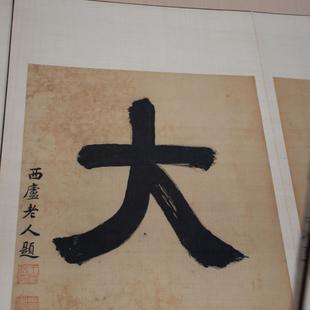 大
西廬老人題